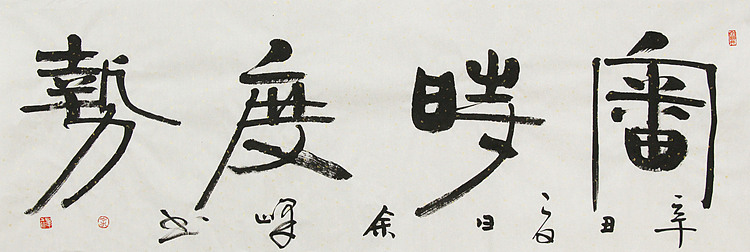 審時度勢
辛丑夏日余峰书